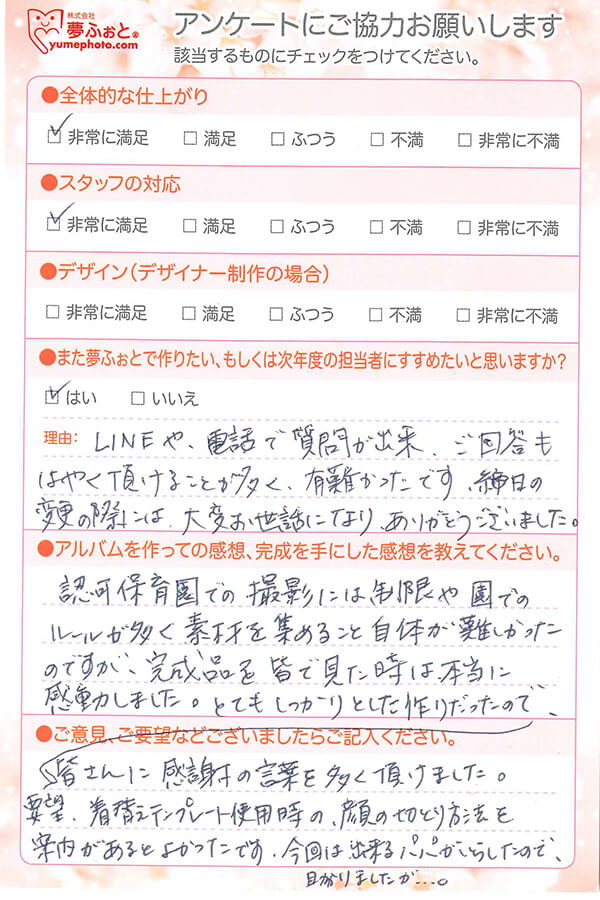 株式会社
夢ふぉと®
yumephoto.com
アンケートにご協力お願いします
該当するものにチェックをつけてください。
●全体的な仕上がり
☑ 非常に満足 □ 満足 □ ふつう □ 不満 □ 非常に不満
●スタッフの対応
☑ 非常に満足 □ 満足 □ ふつう □ 不満 □ 非常に不満
●デザイン(デザイナー制作の場合)
□ 非常に満足 □ 満足 □ ふつう □ 不満 □ 非常に不満
●また夢ふぉとで作りたい、もしくは次年度の担当者にすすめたいと思いますか?
☑ はい □ いいえ
理由: LINEや、電話で質問が出来、ご回答も
はやく頂けることが多く、有難かったです。締日の
変更の際には、大変お世話になり、ありがとうございました。
●アルバムを作っての感想、完成を手にした感想を教えてください。
認可保育園での撮影には制限や園での
ルールが多く素材を集めること自体が難しかった
のですが、完成品を皆で見た時は本当に
感動しました。とてもしっかりとした作りだったので、
●ご意見、ご要望などございましたらご記入ください。
皆さんに感謝の言葉を多く頂けました。
要望、着替えテンプレート使用時の、顔の切とり方法を
案内があるとよかったです。今回は出来るパパがいらしたので、
助かりましたが…。